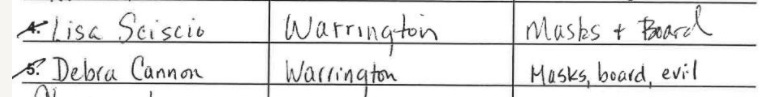 4. Lisa Sciscio Warrington Masks + Board
5. Debra Cannon Warrington Masks, board, evil